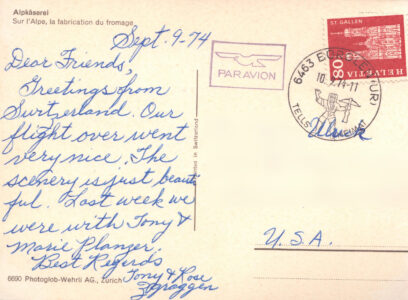 Alpkäserei
Sur l'Alpe, la fabrication du fromage
Sept. 9-74
Dear Friends,
Greetings from
Switzerland. Our
flight over went
very nice. The
scenery is just beauti
ful. Last week we
were with Tony &
Marie Planzer.
Best Regards
Tony & Rose
Zgraggen
6690 Photoglob-Wehrli AG., Zürich
PAR AVION
6463
10.9.74-11
TELLS
ST. GALLEN
80
HELVETIA
U.S.A.